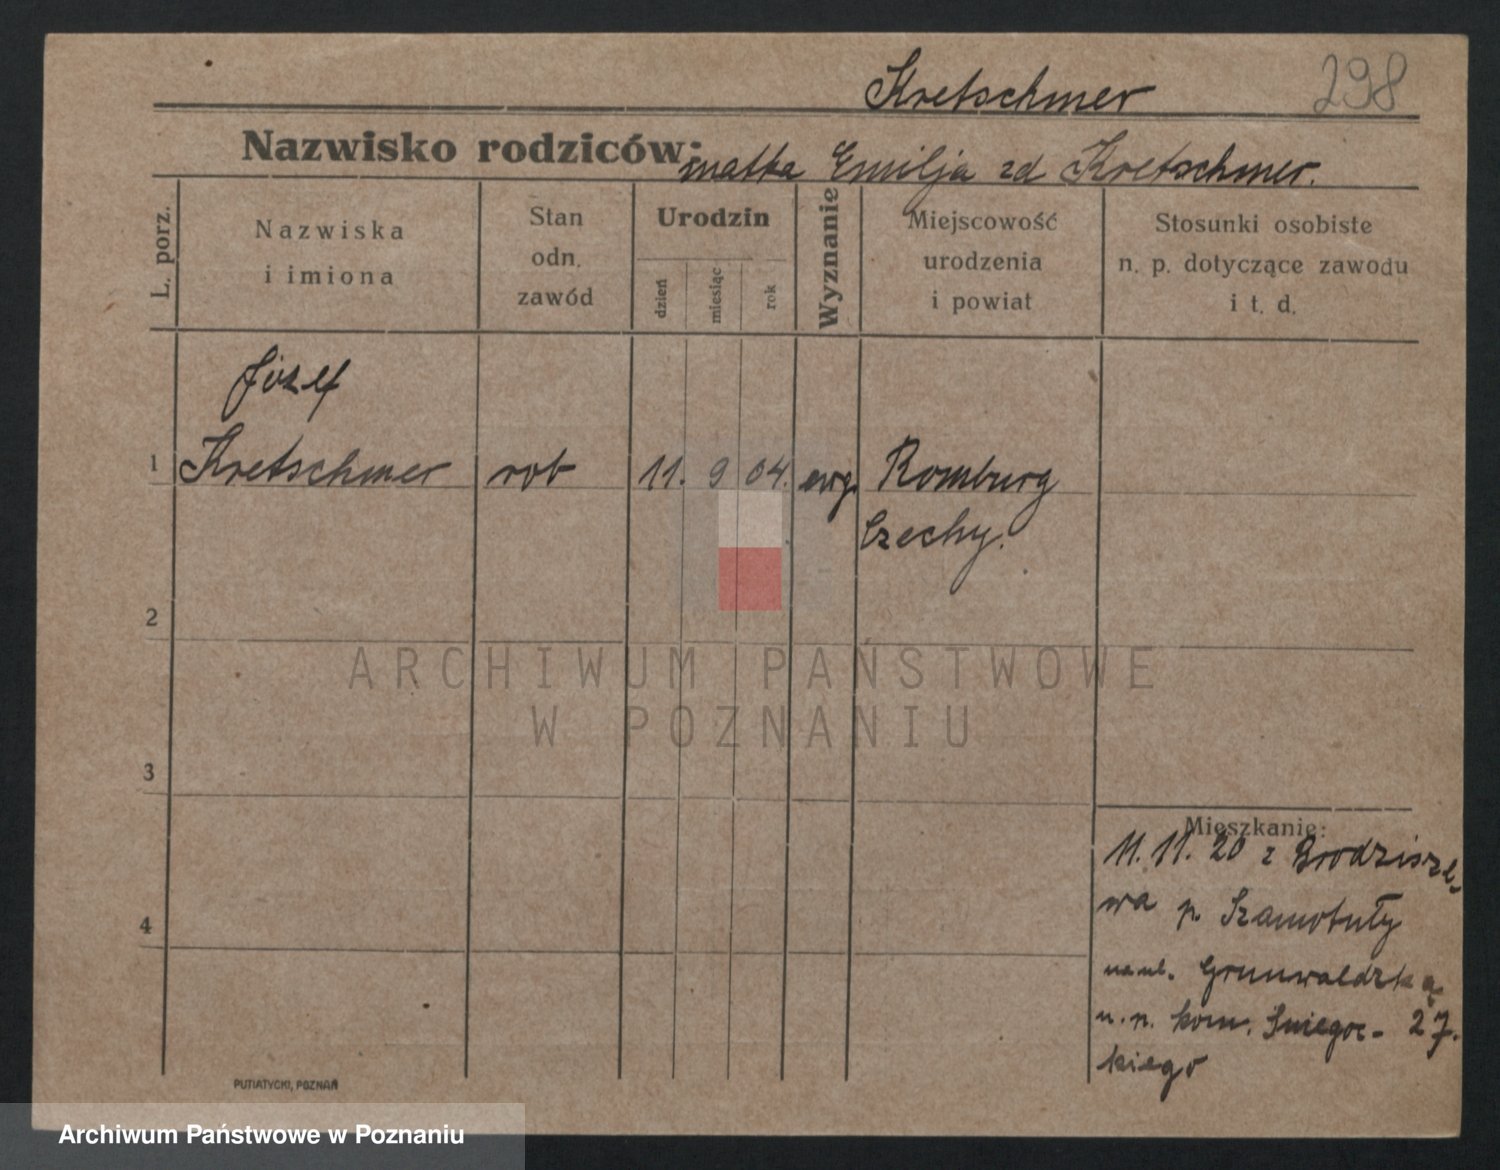 Kretschmer 298
Nazwisko rodziców: matka Emilja zd Kretschmer.
L. porz.
Nazwiska
i imiona
Stan
odn.
zawód
Urodzin
dzień
miesiąc
rok
Wyznanie
Miejscowość
urodzenia
i powiat
Stosunki osobiste
n. p. dotyczące zawodu
i t. d.
Józef
1 Kretschmer rob 11. 9 04. ewg. Romburg
Czechy.
2
ARCHIWUM PAŃSTWOWE
W POZNANIU
3
Mieszkanie:
11. 11. 20 z Brodzisze-
wa p. Szamotuły
na ul. Grunwaldzką
u. p. kom. Śniegoc- 27.
kiego
4
PUTIATYCKI, POZNAŃ
Archiwum Państwowe w Poznaniu